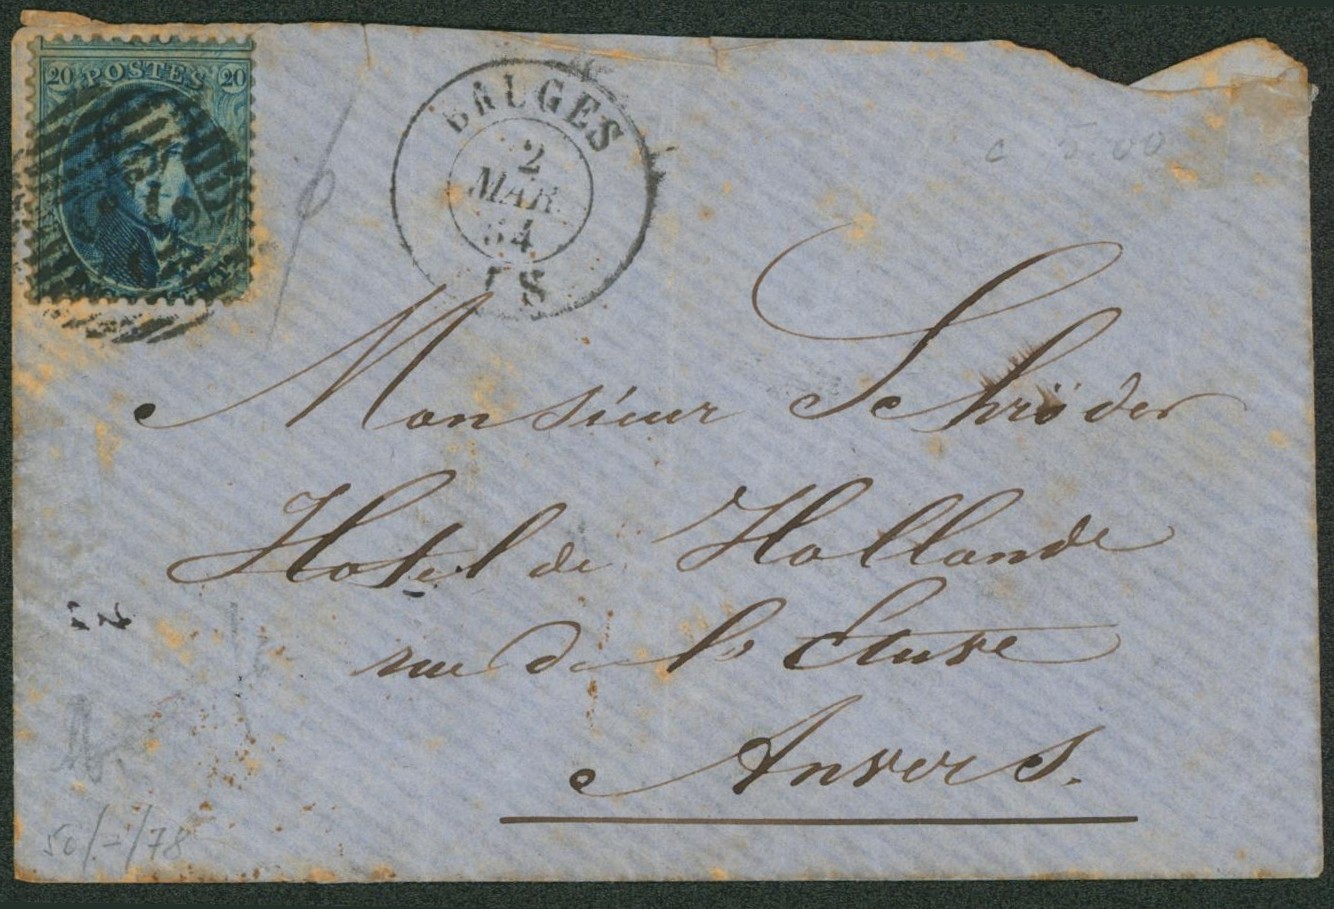 20 POSTES 20
BRUGES
2
MAR
64
c 5.00
Monsieur Schröder
Hotel de Hollande
rue de l'Etuve
Anvers.
50/-/78